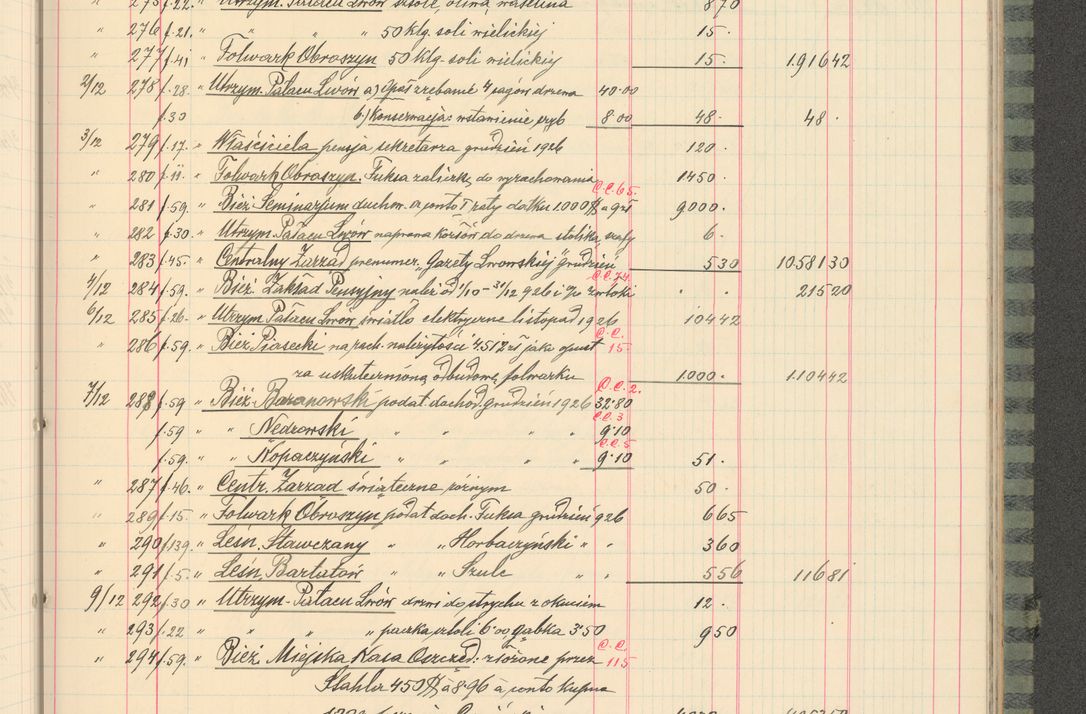 " 275 f.22. " Utrzym. Pałacu Lwów oliwa, waselina 8 70
" 276 f.21. " " " " 50 klg. soli wielickiej 15 .
" 277 f.41 " Folwark Obroszyn 50 klg. soli wielickiej 15 . 1916 42
2/12 278 f.28. " Utrzym. Pałacu Lwów a) opał zrębanie 4 sagów drzewa 40.00
f.30 b) Konserwacja: wstawienie szyb 8.00 48 . 48 .
3/12 279 f.17. " Właściciela pensja sekretarza grudzień 1926 120 .
" 280 f.11. " Folwark Obroszyn. Fuksa zaliczkę do wyrachowania 1450 .
C.C. 65.
" 281 f.59. " Bież. Seminarjum duchow. a conto I raty datku 1.000 $ a 9 zł 9000 .
" 282 f.30. " Utrzym. Pałacu Lwów naprawa koszów do drzewa stolika, szafy 6 .
" 283 f.45. " Centralny Zarząd prenumer. "Gazety Lwowskiej" grudzień 5 30 10581 30
C.C. 74.
4/12 284 f.59. " Bież. Zakład Pensyjny należ. od 1/10 – 31/12 926 i % zwłoki . . 215 20
6/12 285 f.26. " Utrzym. Pałacu Lwów światło elektryczne listopad 1926 104 42
C.C.
" 286 f.59. " Bież Piasecki na rach. należytości 4512 zł jako 15.
za uskutecznioną odbudowę folwarku 1.000 . 1.104 42
C.C. 2.
7/12 288 f.59 " Bież. Baranowski podat. dochod. grudzień 1926 32.80
C.C. 3
f.59 " " Nedzowski " " " " 9.10
C.C. 5
f.59. " " Kopaczyński " " " " 9.10 51 .
" 287 f.46. " Centr. Zarząd świąteczne różnym 50 .
" 289 f.15. " Folwark Obroszyn podat. doch. Fuksa grudzień 926 6 65
" 290 f.139. " Leśn. Stawczany " " Horbaczyński " " 3 60
" 291 f.5. " Leśn. Bartatów " " Szulc " " 5 56 116 81
9/12 292 f.30 " Utrzym. Pałacu Lwów drzwi do strychu z okuciem 12 .
" 293 f.22 " " " " paczka 6.00, gąbka 3.50 9 50
C.C.
" 294 f.59. " Bież. Miejska Kasa Oszczęd: złożone przez 115
Stahla 450 $ à 8.96 à conto kupna